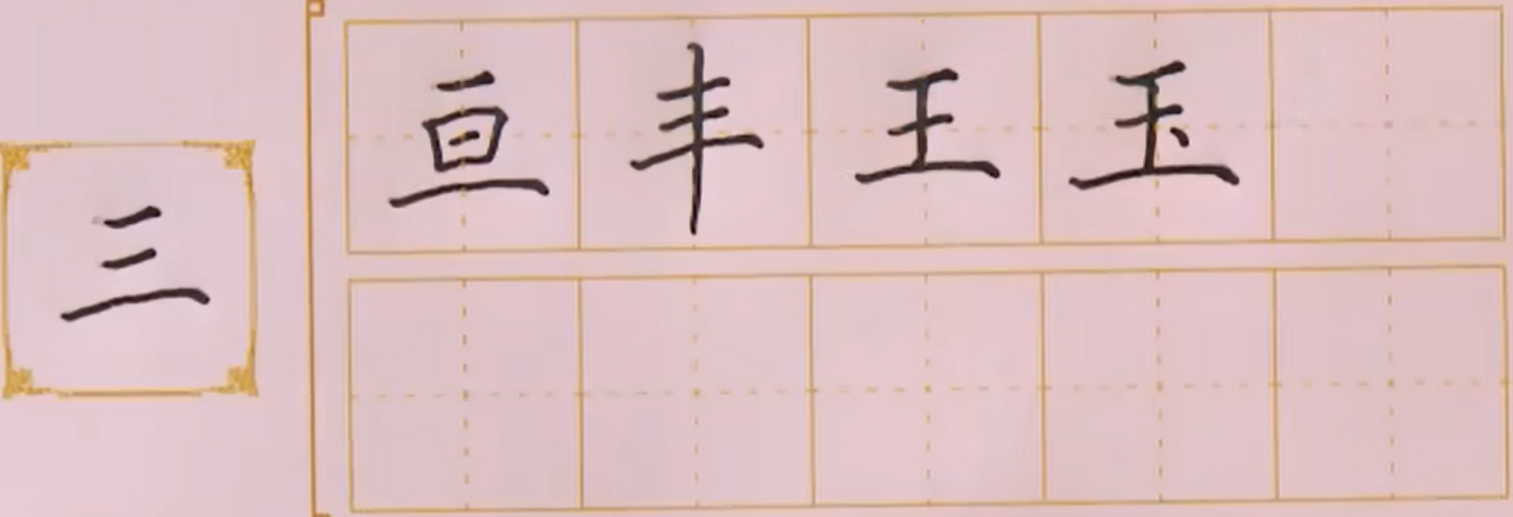 三
亘丰王玉